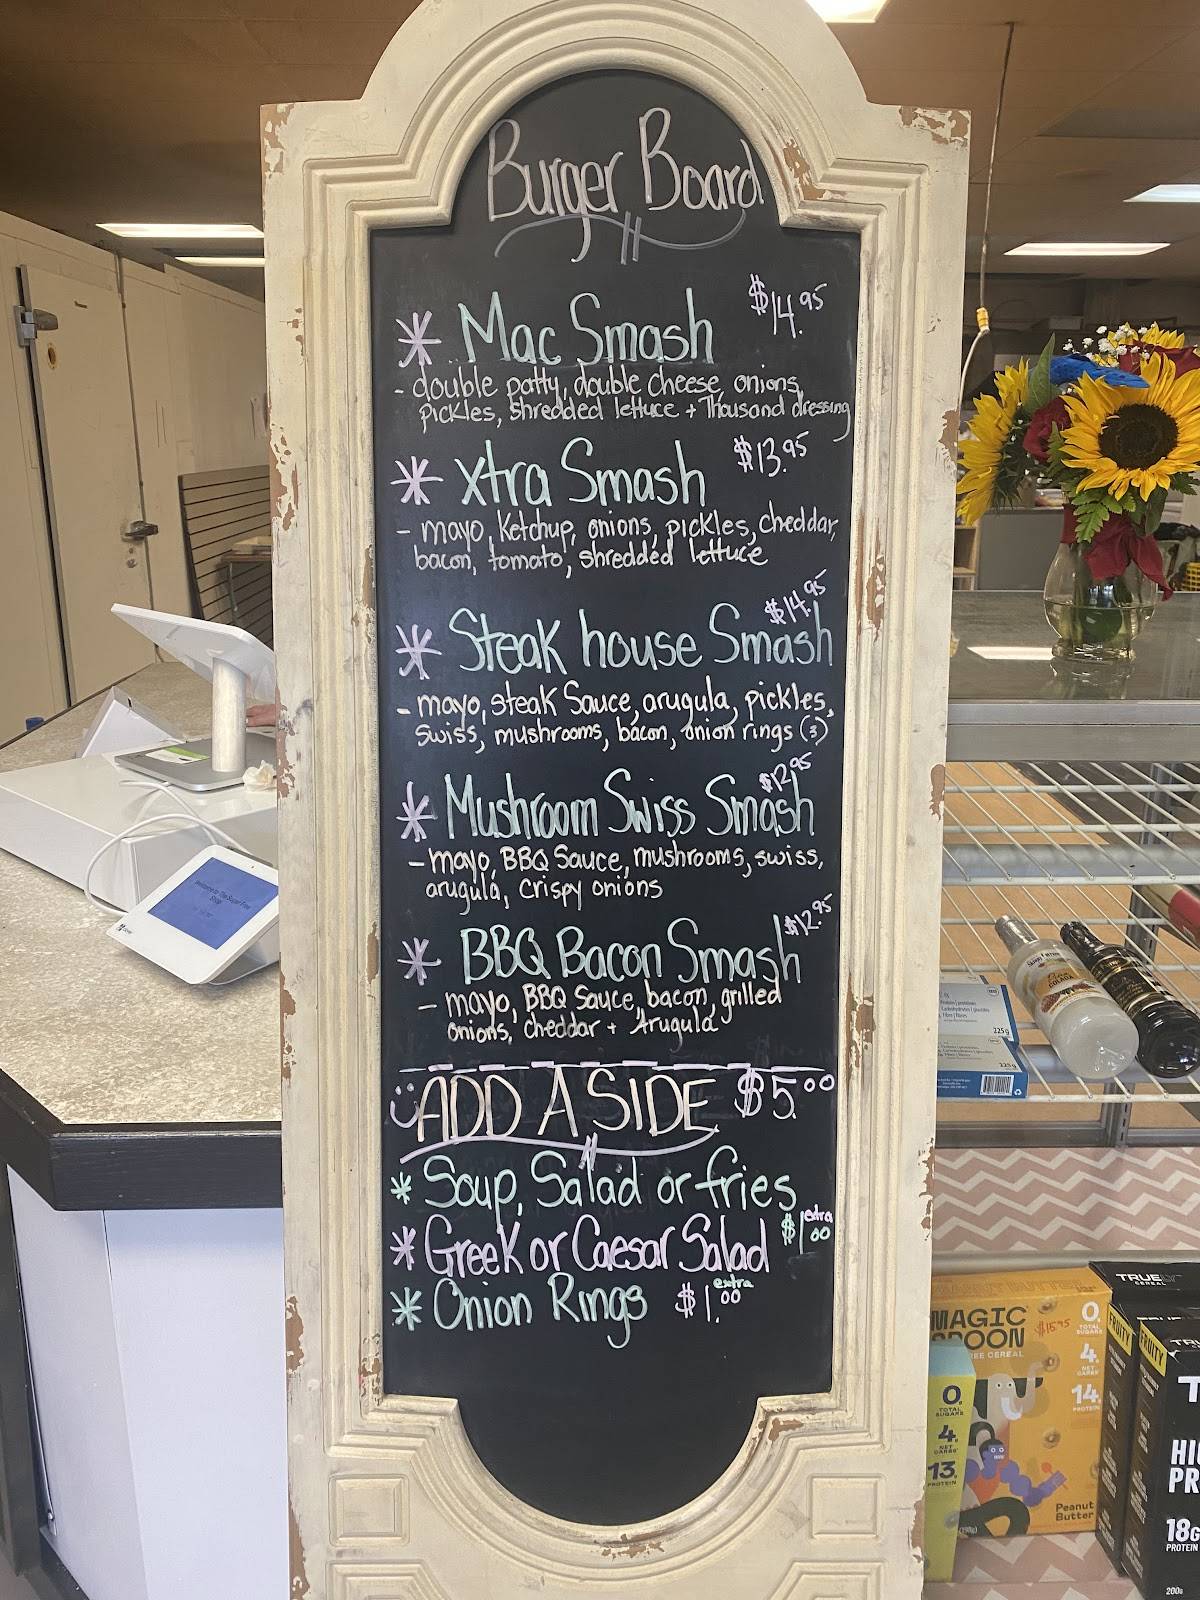 Burger Board
* Mac Smash $14.95
- double patty, double cheese, onions,
pickles, shredded lettuce + Thousand dressing
* Xtra Smash $13.95
- mayo, Ketchup, onions, pickles, cheddar,
bacon, tomato, shredded lettuce
* Steak house Smash $14.95
- mayo, steak Sauce, arugula, pickles,
swiss, mushrooms, bacon, onion rings (3)
* Mushroom Swiss Smash $12.95
- mayo, BBQ Sauce, mushrooms, swiss,
arugula, crispy onions
* BBQ Bacon Smash $12.95
- mayo, BBQ Sauce, bacon, grilled
onions, cheddar + Arugula
ADD A SIDE $5.00
* Soup, Salad or fries
* Greek or Caesar Salad $1.00 extra
* Onion Rings $1.00 extra
Welcome to The Sugar Free
Shop
225g
225g
MAGIC
SPOON
$15.95
0g
TOTAL
SUGARS
4g
NET
CARBS
14g
PROTEIN
Peanut
Butter
0g
TOTAL
SUGARS
4g
NET
CARBS
13g
PROTEIN
TRUELY
CEREAL
FRUITY
FRUITY
18G
PROTEIN
200g